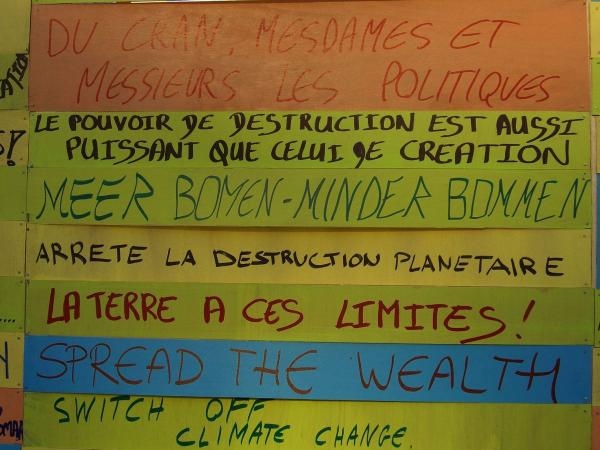 DU CRAN, MESDAMES ET
MESSIEURS LES POLITIQUES
LE POUVOIR DE DESTRUCTION EST AUSSI
PUISSANT QUE CELUI DE CREATION
MEER BOMEN-MINDER BOMMEN
ARRETE LA DESTRUCTION PLANETAIRE
LA TERRE A CES LIMITES!
SPREAD THE WEALTH
SWITCH OFF
CLIMATE CHANGE.